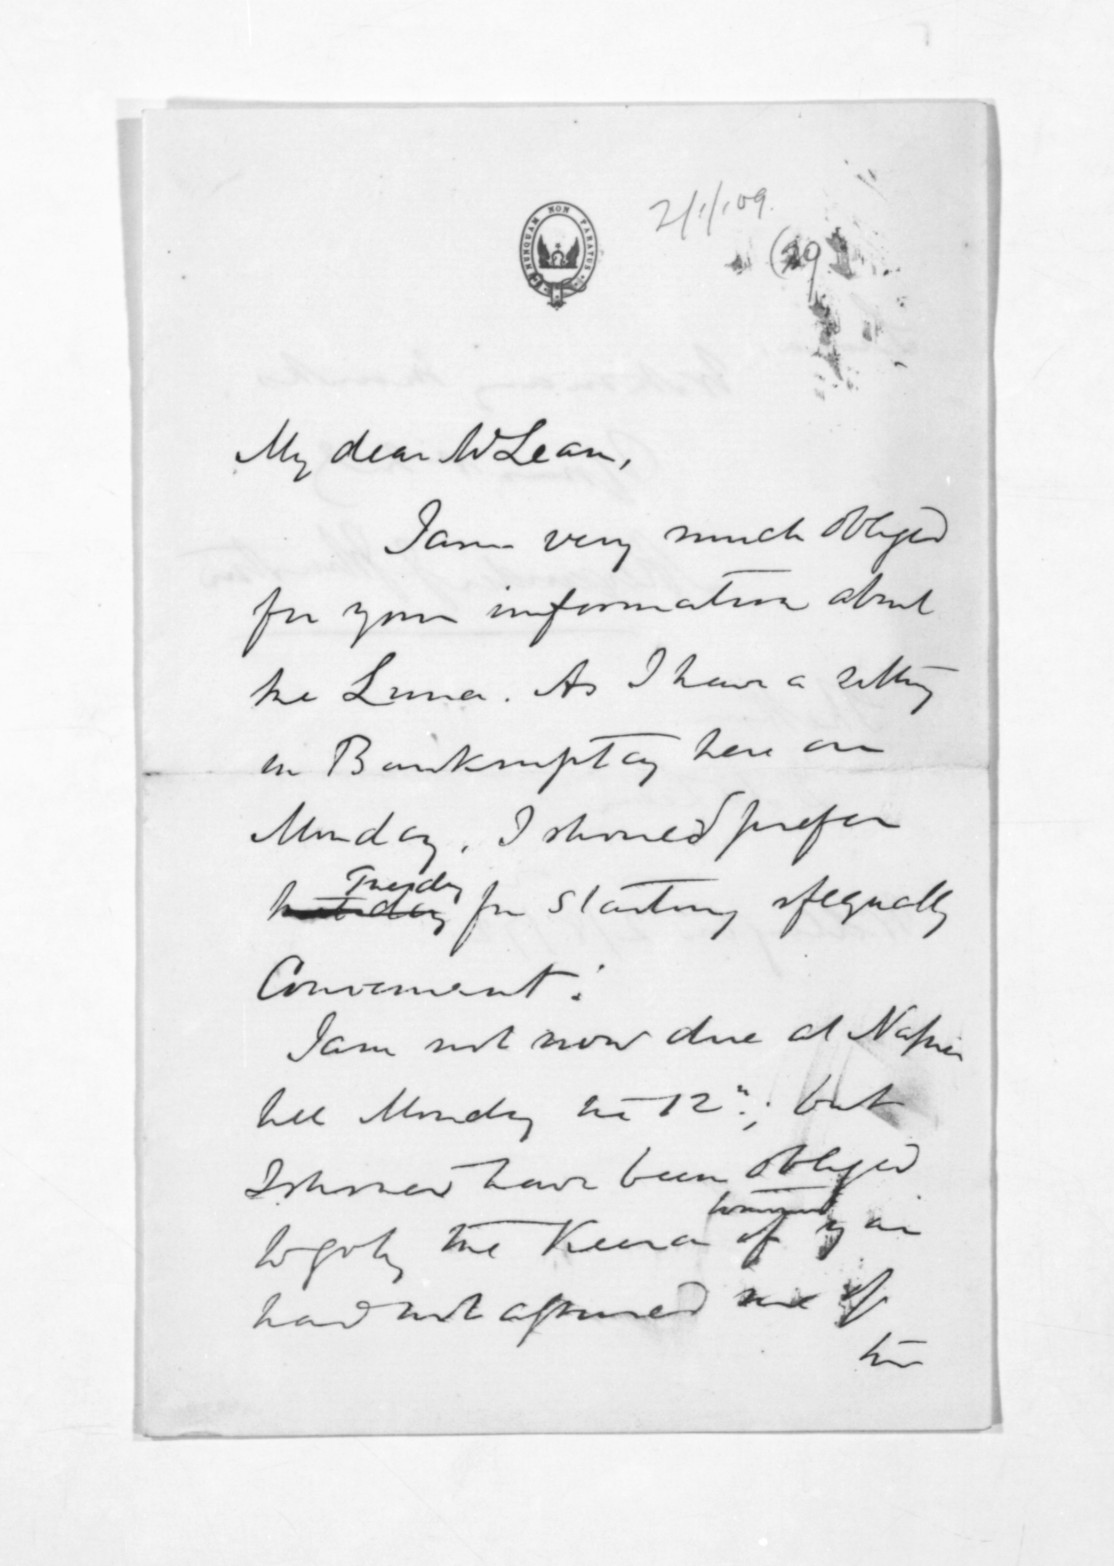 NUNQUAM NON PARATUS
2/1/09.
(29)
My dear McLean,
I am very much obliged
for your information about
the Luna. As I have a sitting
in Bankruptcy here on
Monday, I should prefer
Tuesday
for starting if equally
Convenient.
I am not now due at Napier
till Monday the 12th; but
I should have been obliged
tomorrow
to go by the Keera if you
had not assured me of
the